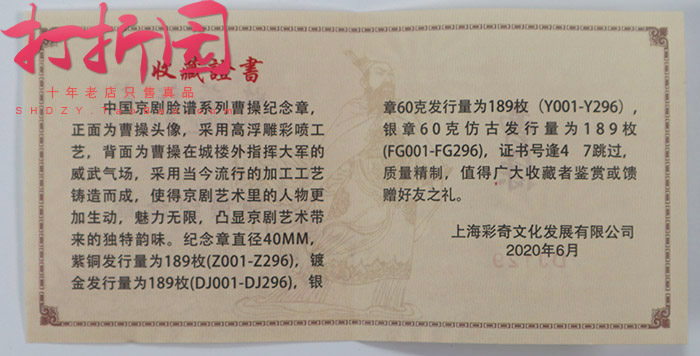 打折园
十年老店只售真品
SHDZY.TAOBAO.COM
收藏證書
中国京剧脸谱系列曹操纪念章，
正面为曹操头像，采用高浮雕彩喷工
艺，背面为曹操在城楼外指挥大军的
威武气场，采用当今流行的加工工艺
铸造而成，使得京剧艺术里的人物更
加生动，魅力无限，凸显京剧艺术带
来的独特韵味。纪念章直径40MM，
紫铜发行量为189枚(Z001-Z296)，镀
金发行量为189枚(DJ001-DJ296)，银
章60克发行量为189枚（Y001-Y296），
银章60克仿古发行量为189枚
(FG001-FG296)，证书号逢4 7跳过，
质量精制，值得广大收藏者鉴赏或馈
赠好友之礼。
上海彩奇文化发展有限公司
2020年6月